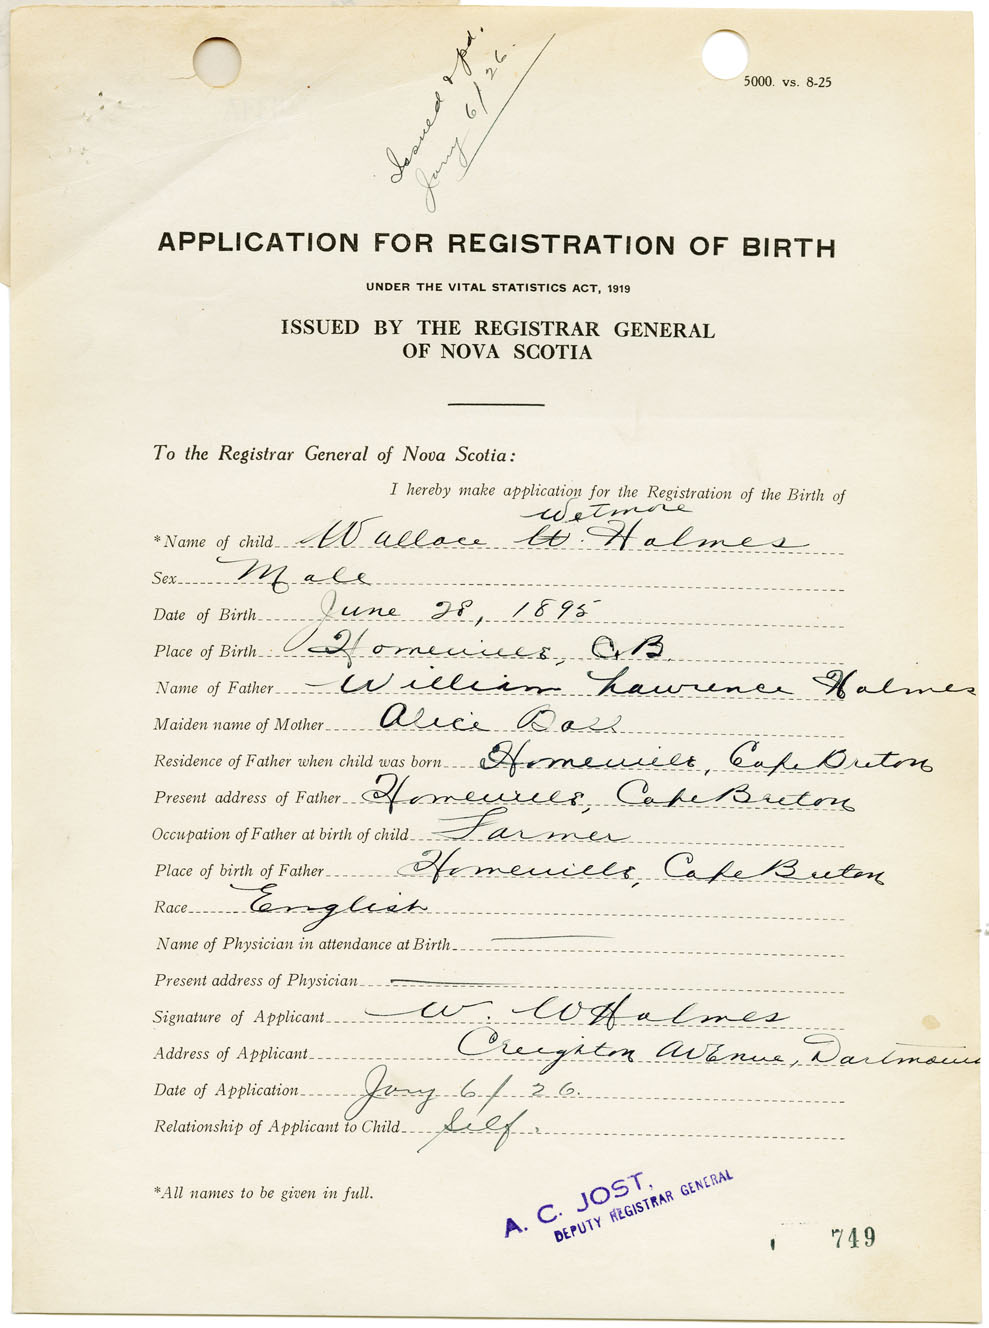 Issued & pd.
Jany 6/26.
5000. vs. 8-25
APPLICATION FOR REGISTRATION OF BIRTH
UNDER THE VITAL STATISTICS ACT, 1919
ISSUED BY THE REGISTRAR GENERAL
OF NOVA SCOTIA
To the Registrar General of Nova Scotia:
I hereby make application for the Registration of the Birth of
Wetmore
*Name of child Wallace W. Holmes
Sex Male
Date of Birth June 28, 1895
Place of Birth Homeville, C.B.
Name of Father William Lawrence Holmes
Maiden name of Mother Alice Ball
Residence of Father when child was born Homeville, Cape Breton
Present address of Father Homeville, Cape Breton
Occupation of Father at birth of child Farmer
Place of birth of Father Homeville, Cape Breton
Race English
Name of Physician in attendance at Birth
Present address of Physician
Signature of Applicant W. W Holmes
Address of Applicant Creighton Avenue, Dartmou
Date of Application Jany 6/26.
Relationship of Applicant to Child Self.
*All names to be given in full.
A. C. JOST,
DEPUTY REGISTRAR GENERAL
749